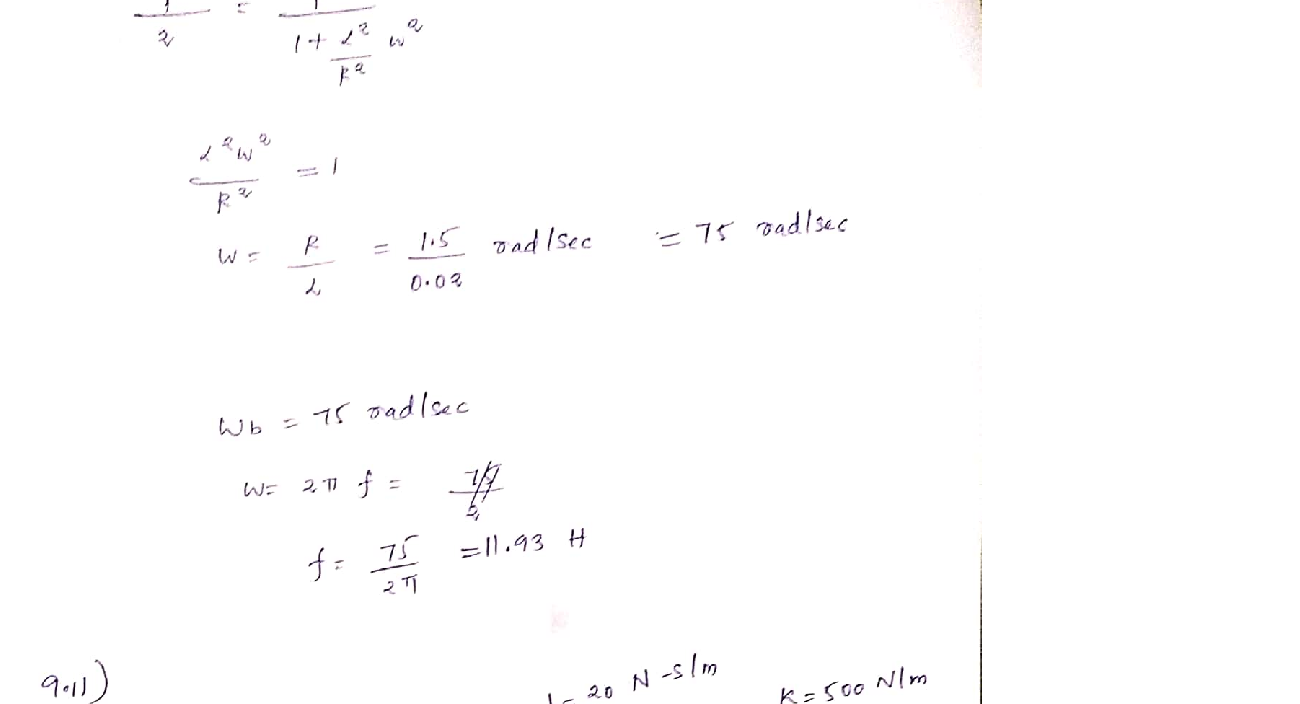 1/2 = 1/(1 + L²/R² w²)
L²w²/R² = 1
w = R/L = 1.5/0.02 rad/sec = 75 rad/sec
Wb = 75 rad/sec
W = 2π f =
f = 75/2π = 11.93 H
9.11)
20 N-s/m K = 500 N/m